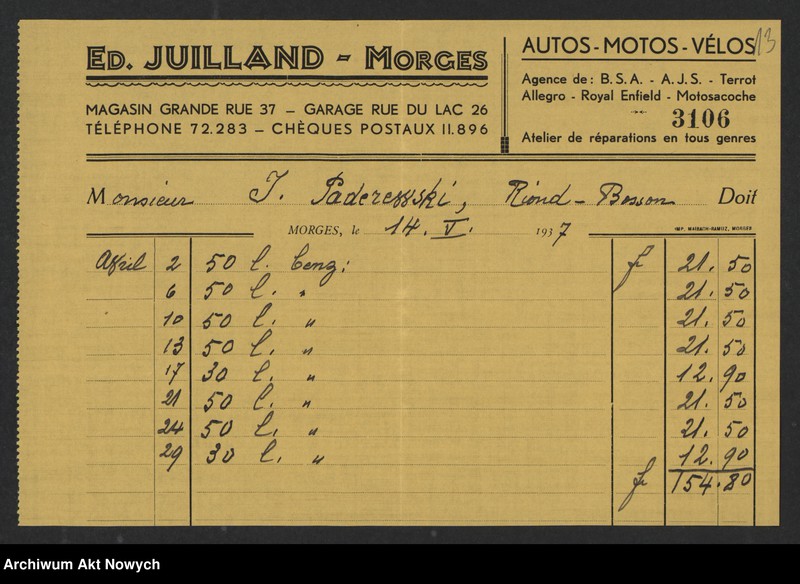 ED. JUILLAND - MORGES
MAGASIN GRANDE RUE 37 – GARAGE RUE DU LAC 26
TÉLÉPHONE 72.283 – CHÈQUES POSTAUX II.896
AUTOS - MOTOS - VÉLOS
13
Agence de: B.S.A. - A.J.S. - Terrot
Allegro - Royal Enfield - Motosacoche
3106
Atelier de réparations en tous genres
Monsieur J. Paderewski, Riond-Bosson Doit
MORGES, le 14. V. 1937
IMP. MAIBACH-RAMUZ, MORGES
Avril 2 50 l. benz: fr 21.50
6 50 l. " 21.50
10 50 l. " 21.50
13 50 l. " 21.50
17 30 l. " 12.90
21 50 l. " 21.50
24 50 l. " 21.50
29 30 l. " 12.90
fr 154.80
Archiwum Akt Nowych